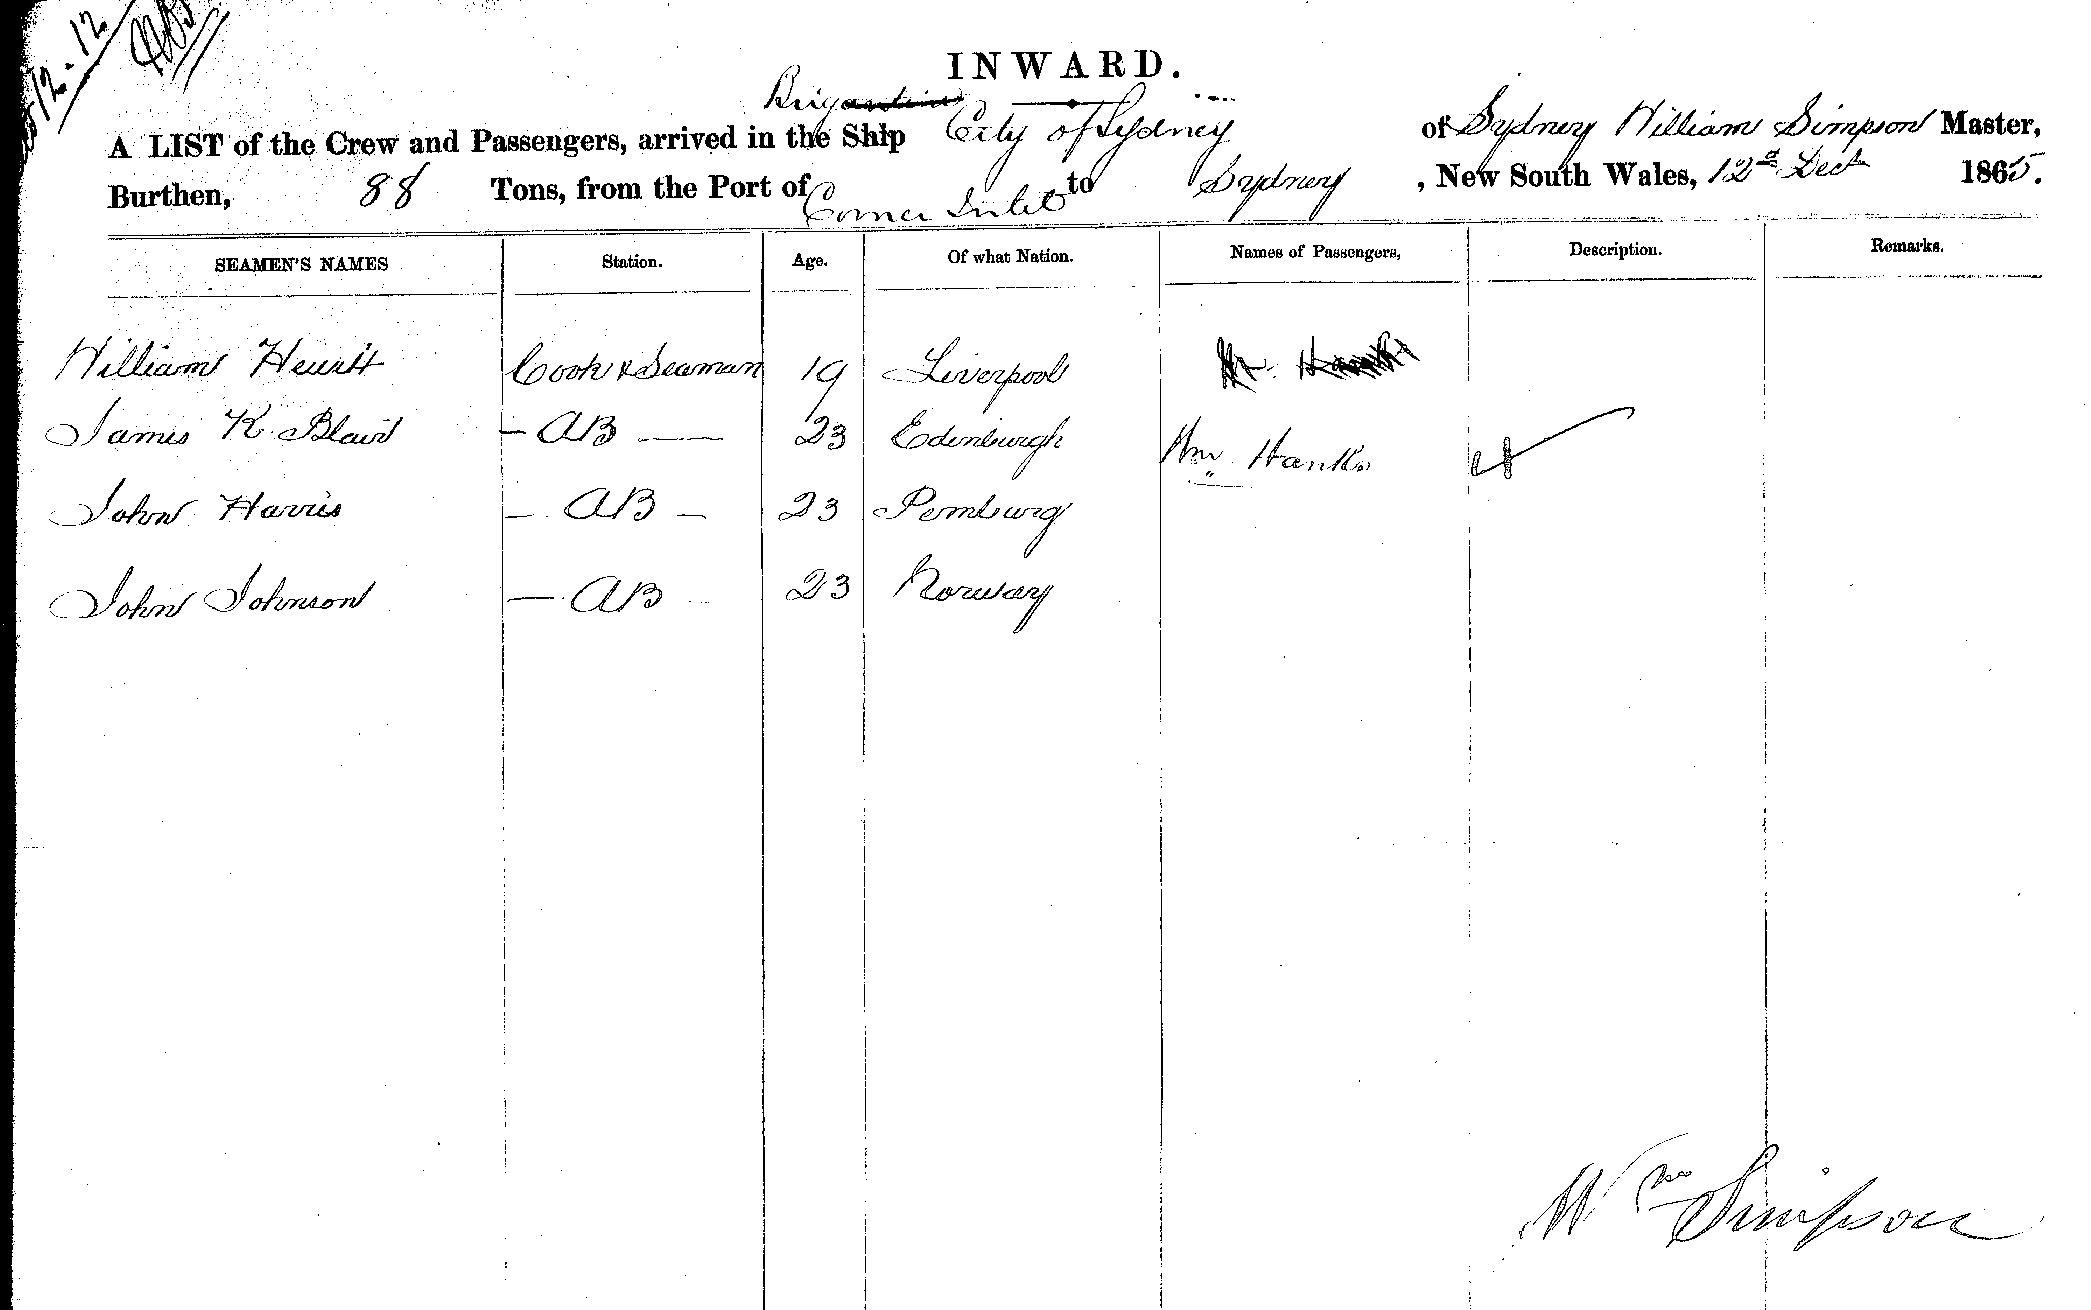 12-12
INWARD.
Brig
A LIST of the Crew and Passengers, arrived in the Ship City of Sydney of Sydney William Simpson Master,
Burthen, 88 Tons, from the Port of Corner Inlet to Sydney, New South Wales, 12th Dect 1865.
SEAMEN'S NAMES Station. Age. Of what Nation. Names of Passengers, Description. Remarks.
William Cook & Seaman 19 Liverpool
James K. Blair - AB - 23 Edinburgh Wm Hanks
John Harris - AB - 23 Pemburg
John Johnson - AB - 23 Norway
Wm Simpson